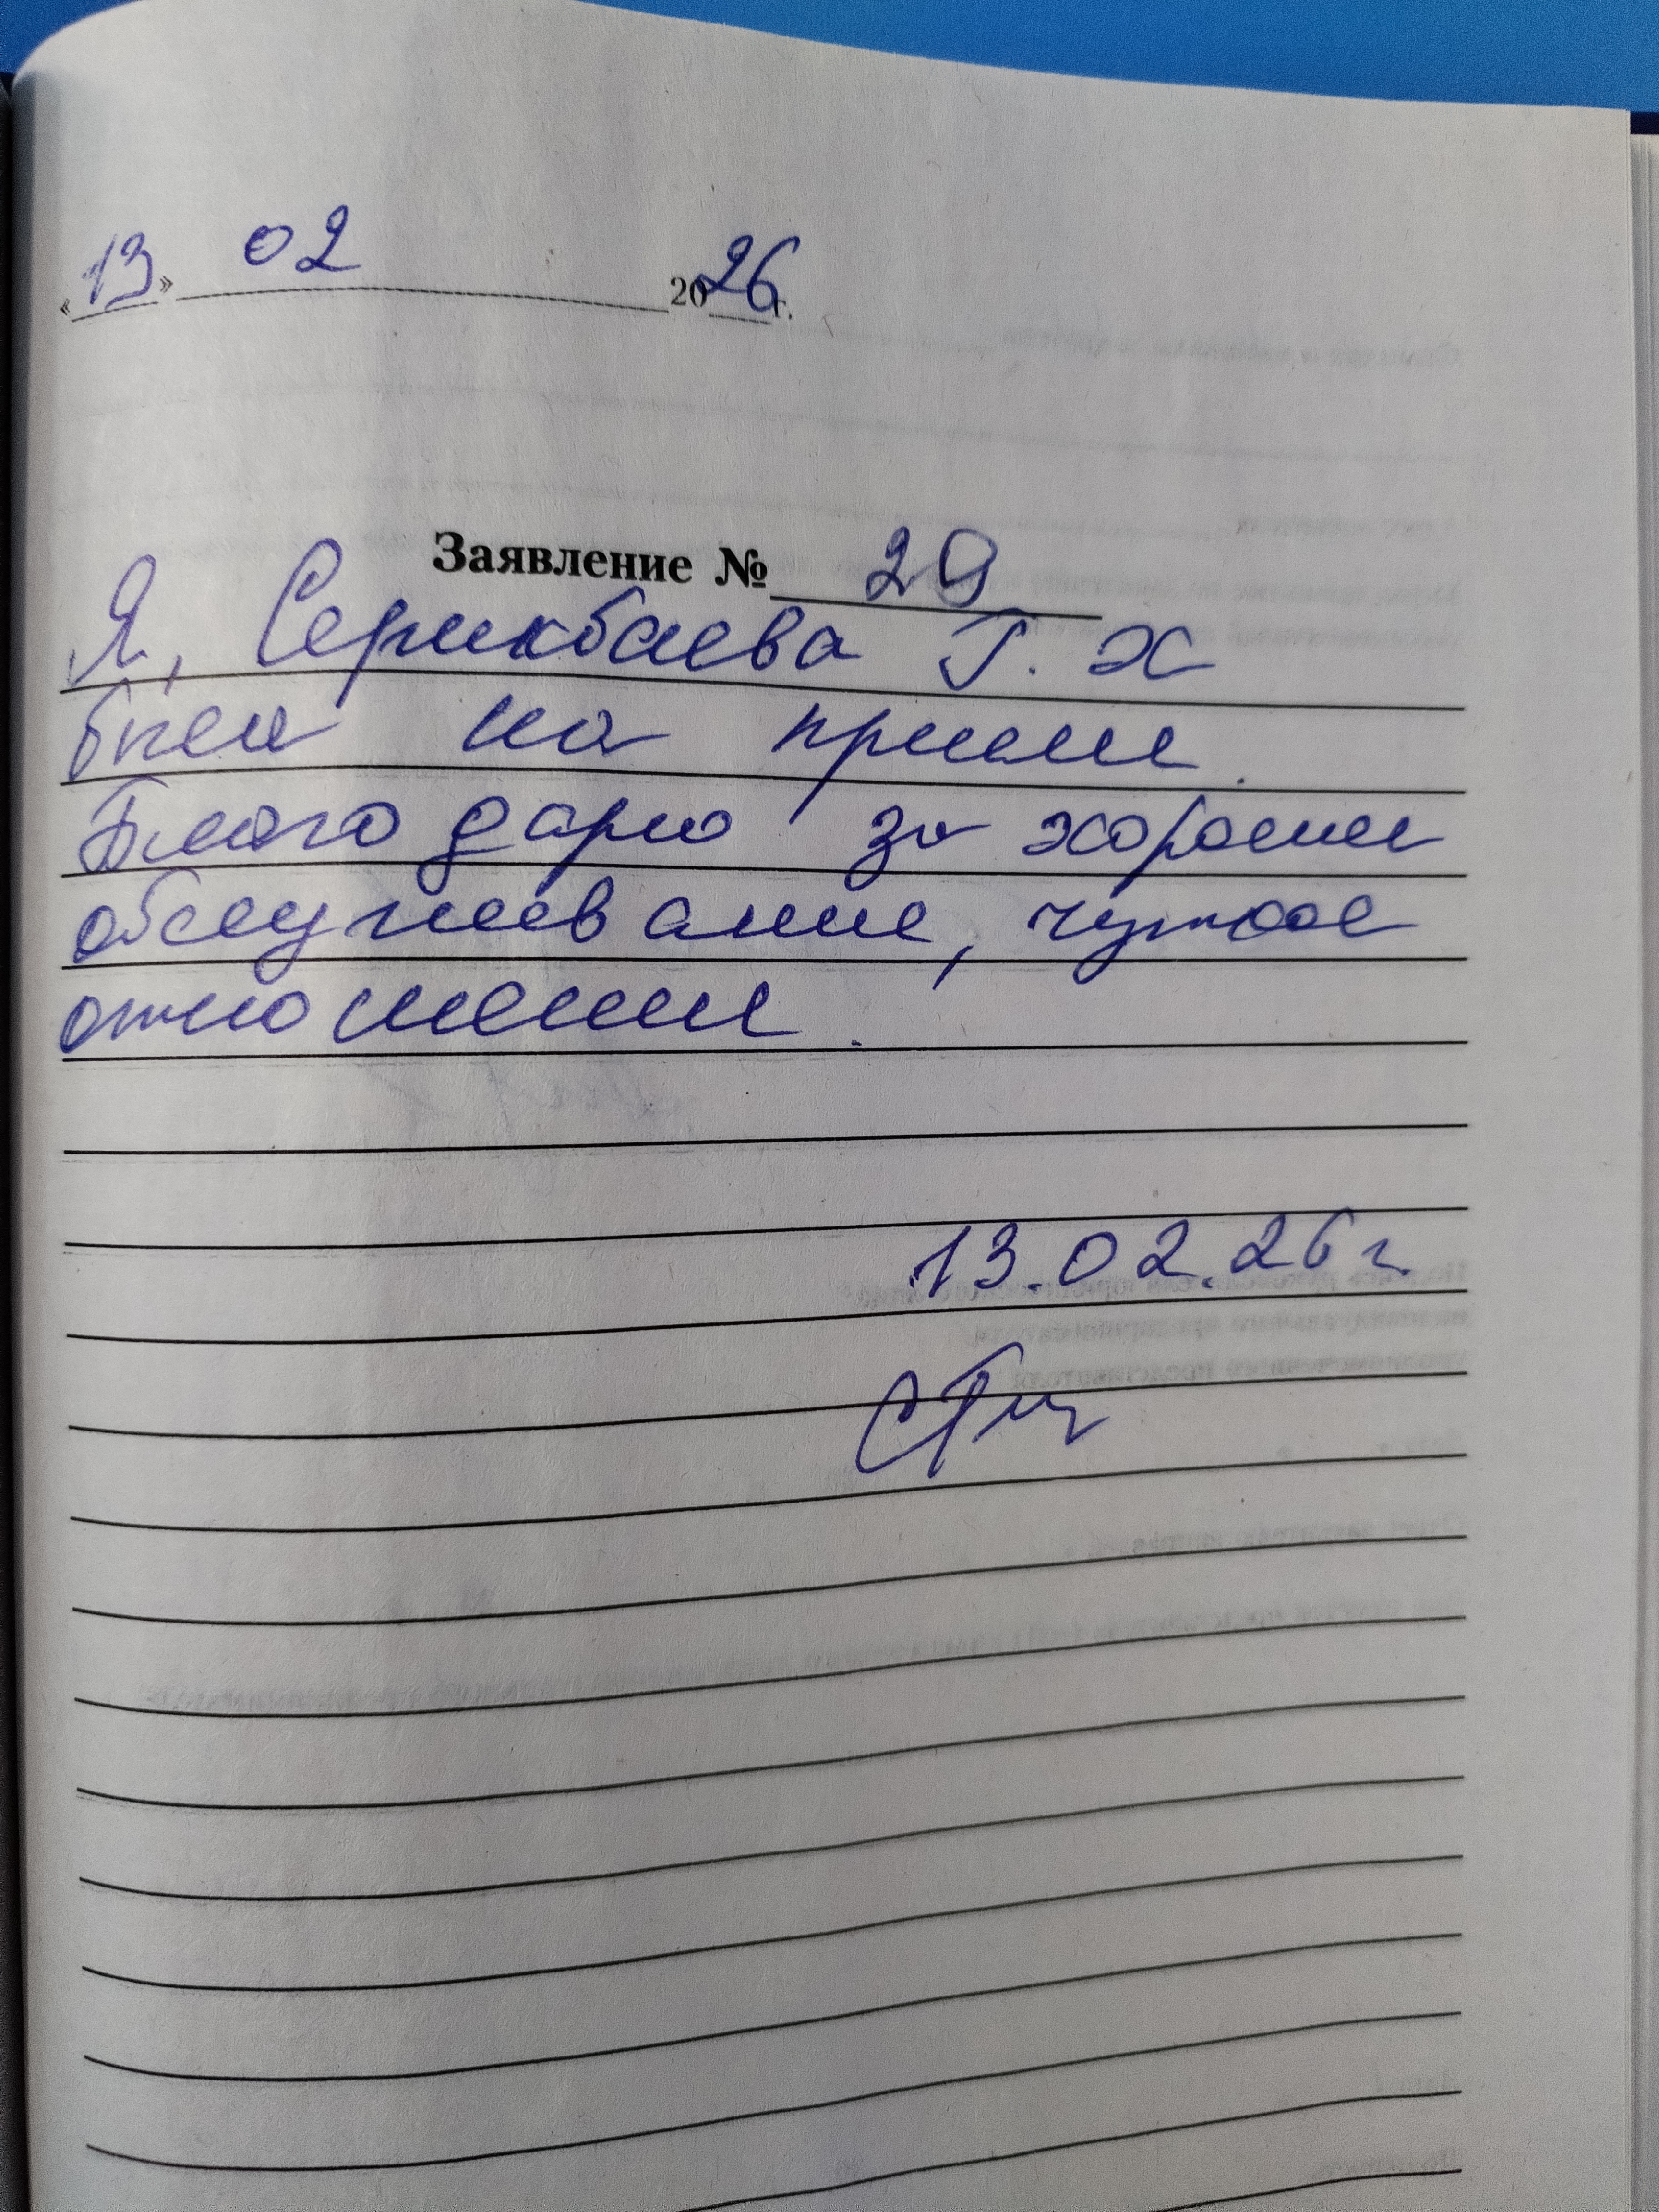 «13» 02 2026 г.
Заявление № 29
Я, Серикбаева Г. Х
был на приеме.
Благодарю за хорошее
обслуживание, чуткое
отношение.
13.02.26 г.